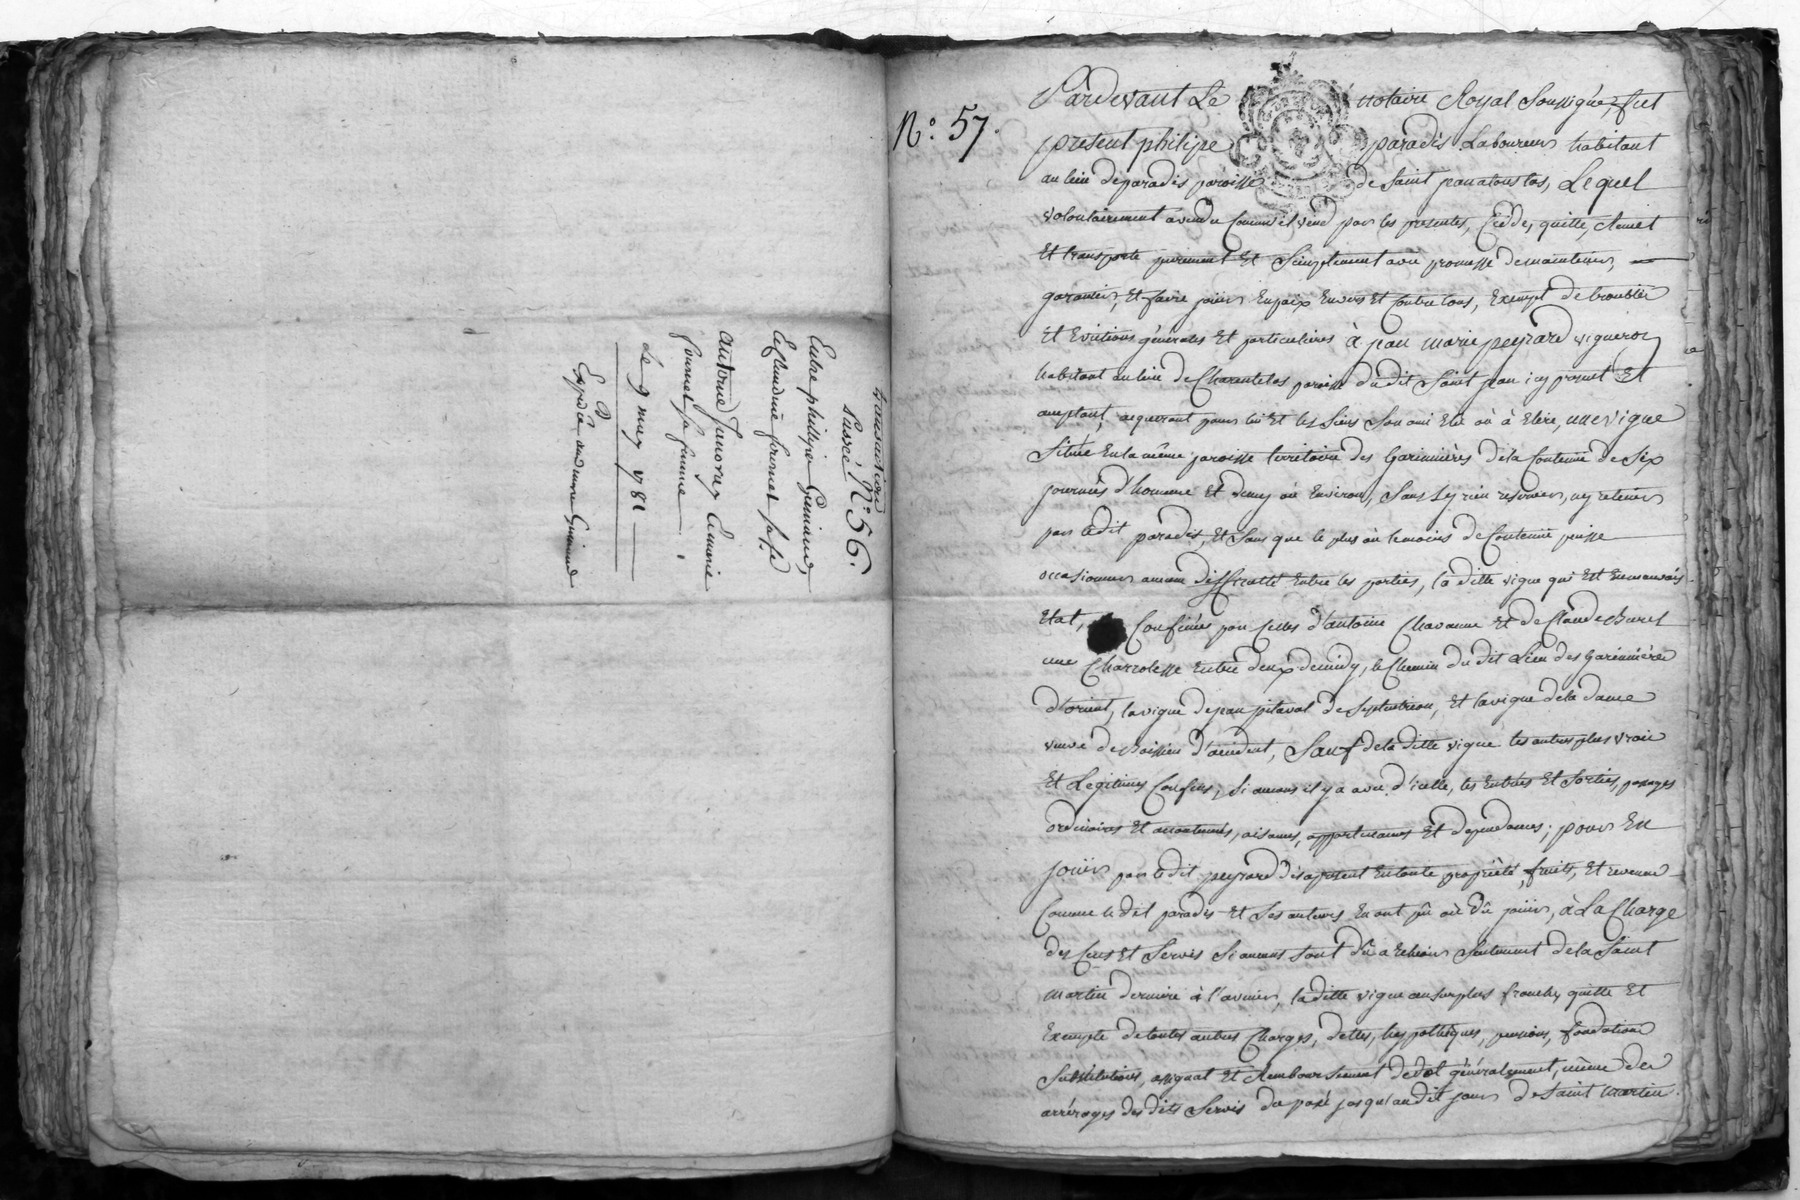 transaction
passée N.º 56.
Entre philippe Guinand,
Claudine fournel sa fe
antoine Janoray & marie
fournel sa femme
Le 9 may 1781
Expédié audit Guinand
N.º 57.
Pardevant Le notaire Royal Soussigné, fut
présent philipe paradis Laboureur habitant
au lieu de paradis paroisse de Saint jean a toustas, Lequel
volontairement a vendu Comme il vend par les presentes, Cedde, quitte, remet
Et transporte purement Et Simplement avec promesse de maintenir,
garantir, Et faire joüir En paix Envers Et Contre tous, Exempt de trouble
Et Evictions générales Et particulieres à jean marie peyrard vigneron
habitant au lieu de Charentetas paroisse du dit Saint jean icy present Et
acceptant, acquerant pour lui Et les Siens Son ami Elû où à Elire, une vigne
Située En la même paroisse territoire des Garinnières de la Contenue de Six
journées d'homme Et demy où Environ, Sans s'y rien reserver, ny retenir
par le dit paradis, Et Sans que le plus où le moins de Contenue puisse
occasionner aucune difficulté Entre les parties, la ditte vigne qui Est En mauvais
Etat, Confinée par Celles d'antoine Chavanne Et de Claude Burel
une Charrolesse Entre deux de midy, le Chemin du dit Lieu des Garinnières
d'orient, la vigne de jean pitaval de Septentrion, Et la vigne de la dame
veuve de Boissieu d'occident, Sauf de la ditte vigne les autres plus vrais
Et Legitimes Confins, Si aucuns il y a avec d'icelle, les Entrées Et Sorties, passages
ordinaires Et accoutumés, aisances, appartenances Et dependances; pour En
joüir par le dit peyrard dès aprésent En toute propriété, fruits, Et revenus
Comme le dit paradis Et Ses auteurs En ont pû où dû joüir, à La Charge
des Cens Et Servis Si aucuns Sont dûs a Echoir Seulement de la Saint
martin derniere à l'avenir, la ditte vigne au surplus franche, quitte Et
Exempte de toutes autres Charges, dettes, hypothèques, pensions, fondations
Substitutions, assignat Et Remboursement de dot généralement, même des
arrérages des dits Servis du passé jusqu'au dit jour de Saint martin.